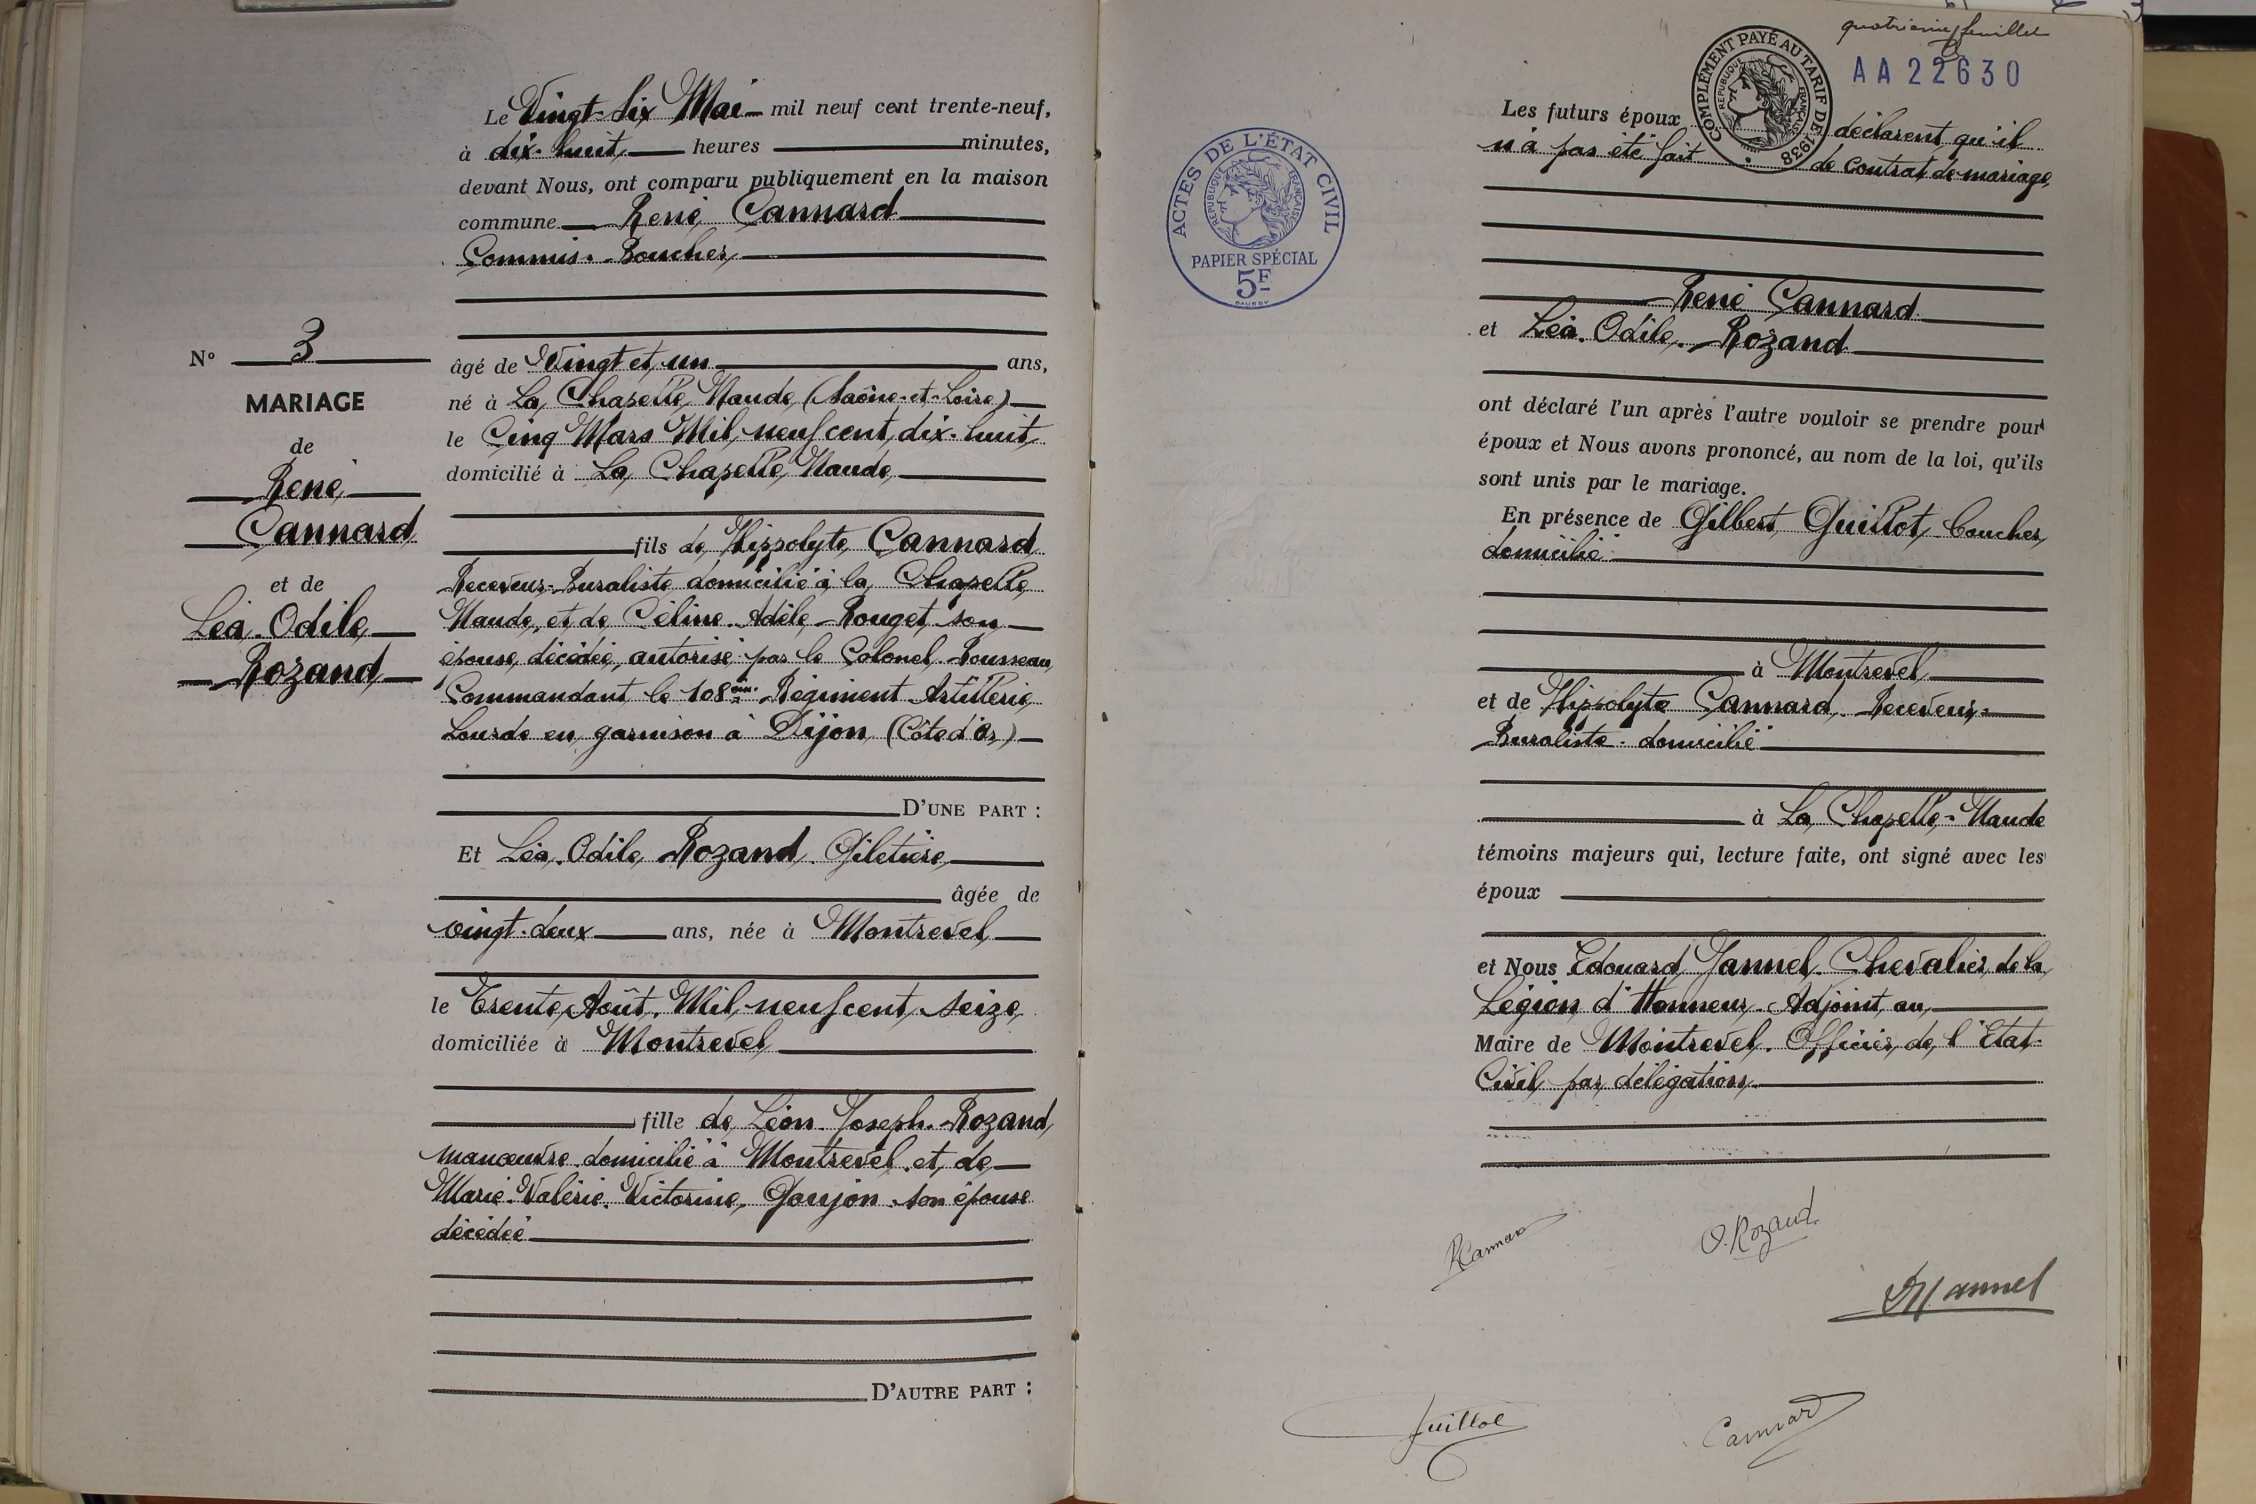 N° 3
MARIAGE
de
René
Cannard
et de
Léa Odile
Rozand
Le Vingt-Six Mai mil neuf cent trente-neuf,
à dix-huit heures minutes,
devant Nous, ont comparu publiquement en la maison
commune René Cannard
Commis-Boucher
âgé de Vingt et un ans,
né à La Chapelle Naude (Saône-et-Loire)
le Cinq Mars Mil neuf cent dix-huit
domicilié à La Chapelle Naude
fils de Hippolyte Cannard
Receveur-Buraliste domicilié à la Chapelle
Naude, et de Céline Adèle Rouget son
épouse, décédée, autorisé par le Colonel Rousseau
Commandant le 108ème Régiment Artillerie
Lourde en garnison à Dijon (Côte d'Or)
D'UNE PART :
Et Léa Odile Rozand Giletière
âgée de
vingt-deux ans, née à Montrevel
le Trente Août Mil neuf cent seize
domiciliée à Montrevel
fille de Léon Joseph Rozand
manœuvre domicilié à Montrevel et de
Marie Valérie Victorine Goujon son épouse
décédée
D'AUTRE PART :
quatrième feuillet
AA 22630
COMPLÉMENT PAYÉ AU TARIF DE 1938
RÉPUBLIQUE FRANÇAISE
ACTES DE L'ÉTAT CIVIL
RÉPUBLIQUE FRANÇAISE
PAPIER SPÉCIAL
5F
Les futurs époux déclarent qu'il
n'a pas été fait de contrat de mariage
René Cannard
et Léa Odile Rozand
ont déclaré l'un après l'autre vouloir se prendre pour
époux et Nous avons prononcé, au nom de la loi, qu'ils
sont unis par le mariage.
En présence de Gilbert Guillot, boucher,
domicilié
à Montrevel
et de Hippolyte Cannard, Receveur-
Buraliste domicilié
à La Chapelle-Naude
témoins majeurs qui, lecture faite, ont signé avec les
époux
et Nous Edouard Jannel Chevalier de la
Légion d'Honneur Adjoint au
Maire de Montrevel. Officier de l'Etat-
Civil par délégation
RCannard
O. Rozand
Jannel
Guillot
Cannard